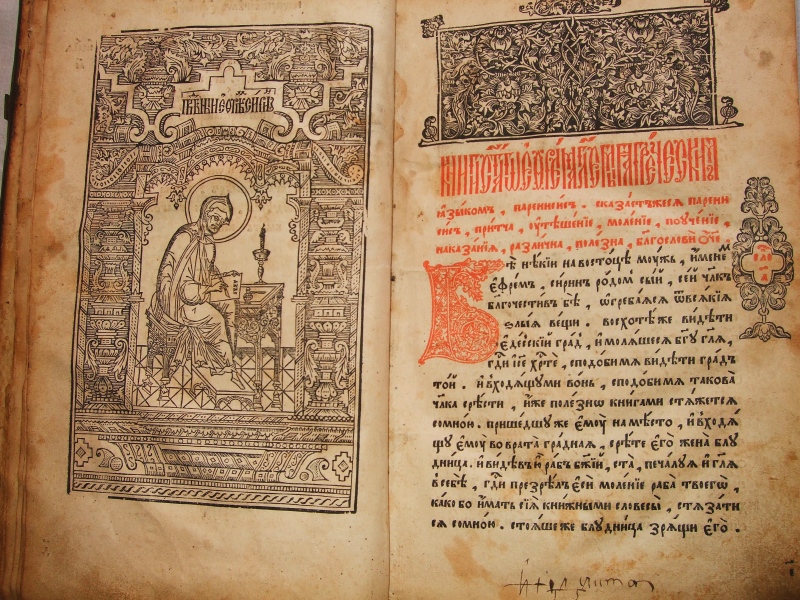 прпⷣбныи ефремъ сиринъ
языкомъ, паренисисъ. сказаетжеся парени
сисъ, притча, оутѣшенїе, моленїе, поученїе,
наказанїя, различна, полезна, бл҃гословиѻ҃че.
сло
а҃
Бѣ нѣкїи навостоцѣ моужъ, именеⷨ
Ефремъ, сиринъ родомъ сыи, сеи чл҃къ
бл҃гочестивъ бѣ, ѿгребаяся ѿвсякїя
ѕлыя вещи. восхотѣже видѣти
едескїи градъ, и моляшеся бг҃у гл҃я,
гд҃и іс҃е хрⷭ҇те, сподобимя видѣти градъ
тои. ивходящуми вонь, сподобимя такова
чл҃ка срѣсти, иже полезнѡ книгами стяжется
сомною. пришедшуже емоу намѣсто, ивходя
щу емоу вовратa градная, срѣте его жена блу
дница. ивидѣвъ ю рабъ бж҃їи, ста, печалуя игл҃я
всебѣ, гд҃и презрѣлъ еси моленїе раба твоегѡ,
какобо иматъ сїя книжными словесы, стязати
ся сомною. стояшеже блудница зрящи его.